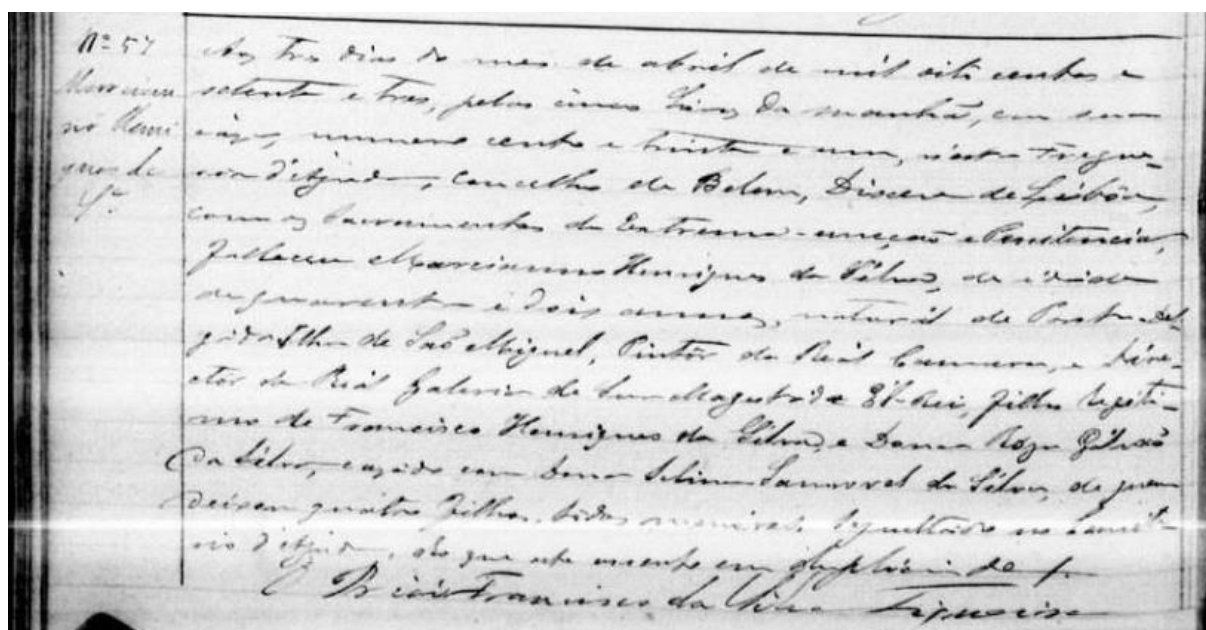 Nº 57
Marcianno Henriques da Sª
Aos tres dias do mez de abril de mil oito centos e
setenta e tres, pelas cinco horas da manhã, em sua
caza, numero cento e trinta e um, n'esta Fregue-
zia d'Ajuda, Concelho de Belem, Diocese de Lisbôa,
com os Sacramentos da Extrema-uncção e Penitencia,
Falleceu Marcianno Henriques da Silva, de idade
de quarenta e dois annos, natural de Ponta Del-
gada Ilha de São Miguel, Pintor da Real Camara, e Dire-
ctor da Real Galeria de Sua Magestade El-Rei, filho legiti-
mo de Francisco Henriques da Silva, e Donna Roza
da Silva, cazado com Dona Selina da Silva, de quem
deixou quatro filhos, todos menores. Sepultado no Cemite-
rio d'Ajuda, do que este assento em duplicado
O Prior Francisco da Silva Figueira